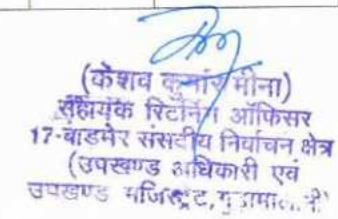 (केशव कुमार मीना)
सहायक रिटर्निंग ऑफिसर
17-बाडमेर संसदीय निर्वाचन क्षेत्र
(उपखण्ड अधिकारी एवं
उपखण्ड मजिस्ट्रेट,